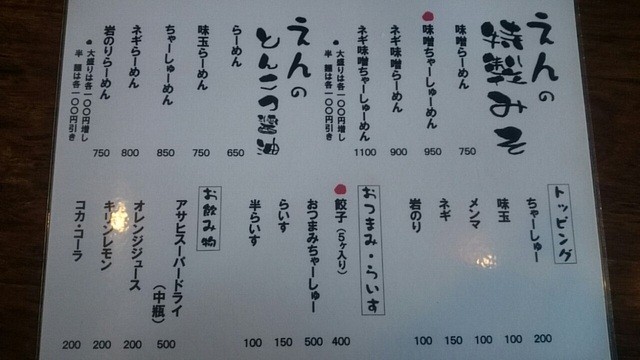 えんの
特製みそ
味噌らーめん 750
味噌ちゃーしゅーめん 950
ネギ味噌らーめん 900
ネギ味噌ちゃーしゅーめん 1100
大盛りは各一〇〇円増し
半麺は各一〇〇円引き
えんの
とんこつ醤油
らーめん 650
味玉らーめん 750
ちゃーしゅーめん 850
ネギらーめん 800
岩のりらーめん 750
大盛りは各一〇〇円増し
半麺は各一〇〇円引き
トッピング
ちゃーしゅー 200
味玉 100
メンマ 100
ネギ 150
岩のり 100
おつまみ・らいす
餃子(5ヶ入り) 400
おつまみちゃーしゅー 500
らいす 150
半らいす 100
お飲み物
アサヒスーパードライ(中瓶) 500
オレンジジュース 200
キリンレモン 200
コカ・コーラ 200